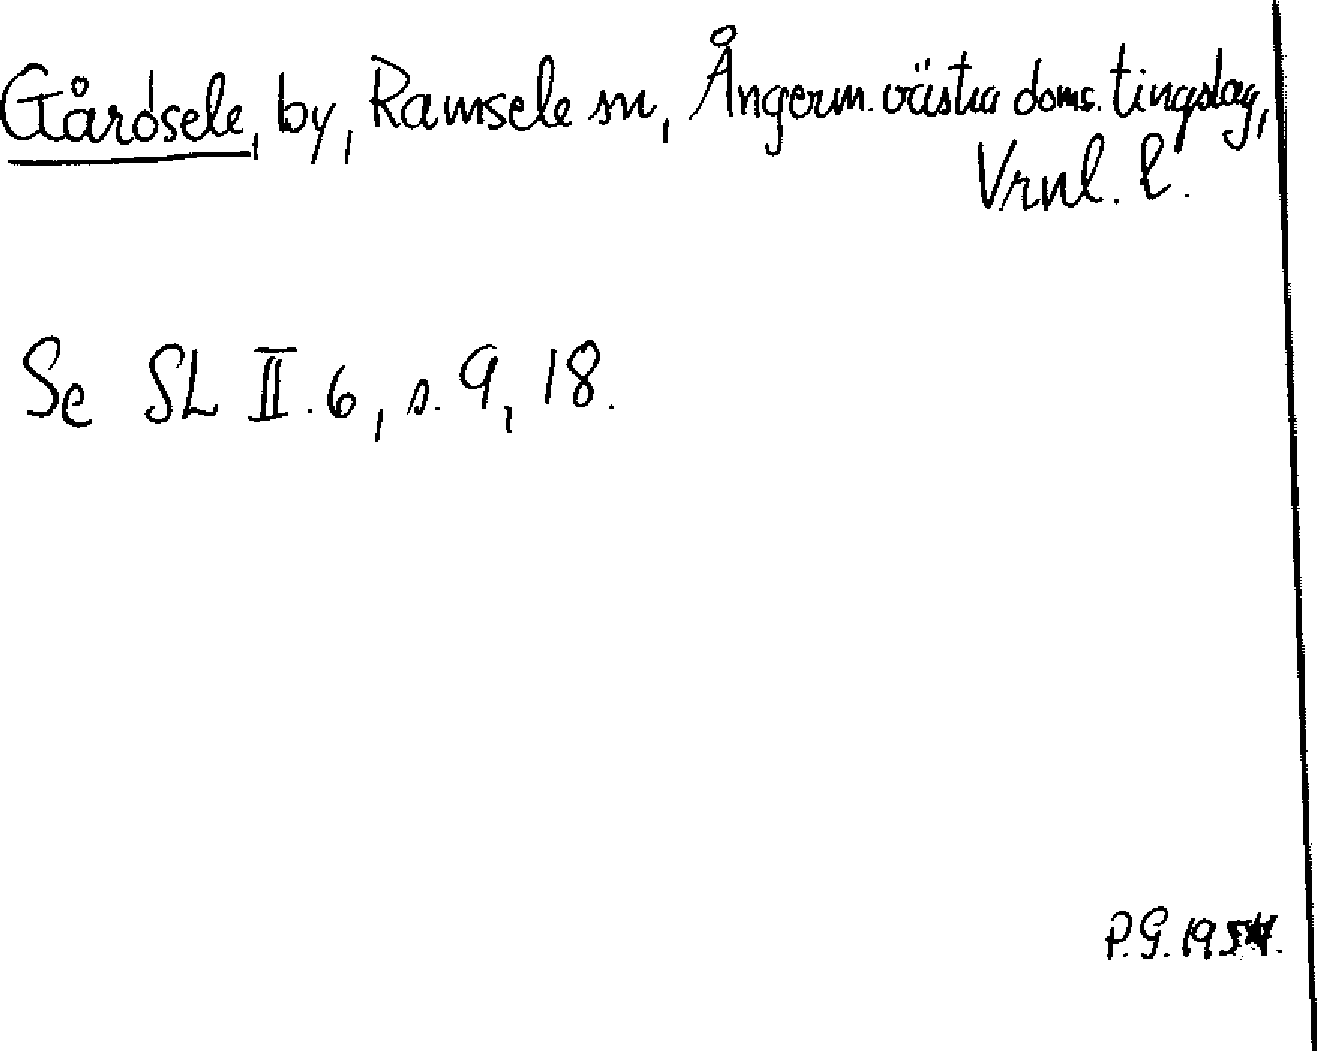 Gårdsele, by, Ramsele sn, Ångerm. västra doms. tingslag,
Vrnl. l.
Se SL II.6, s. 9, 18.
P.G.